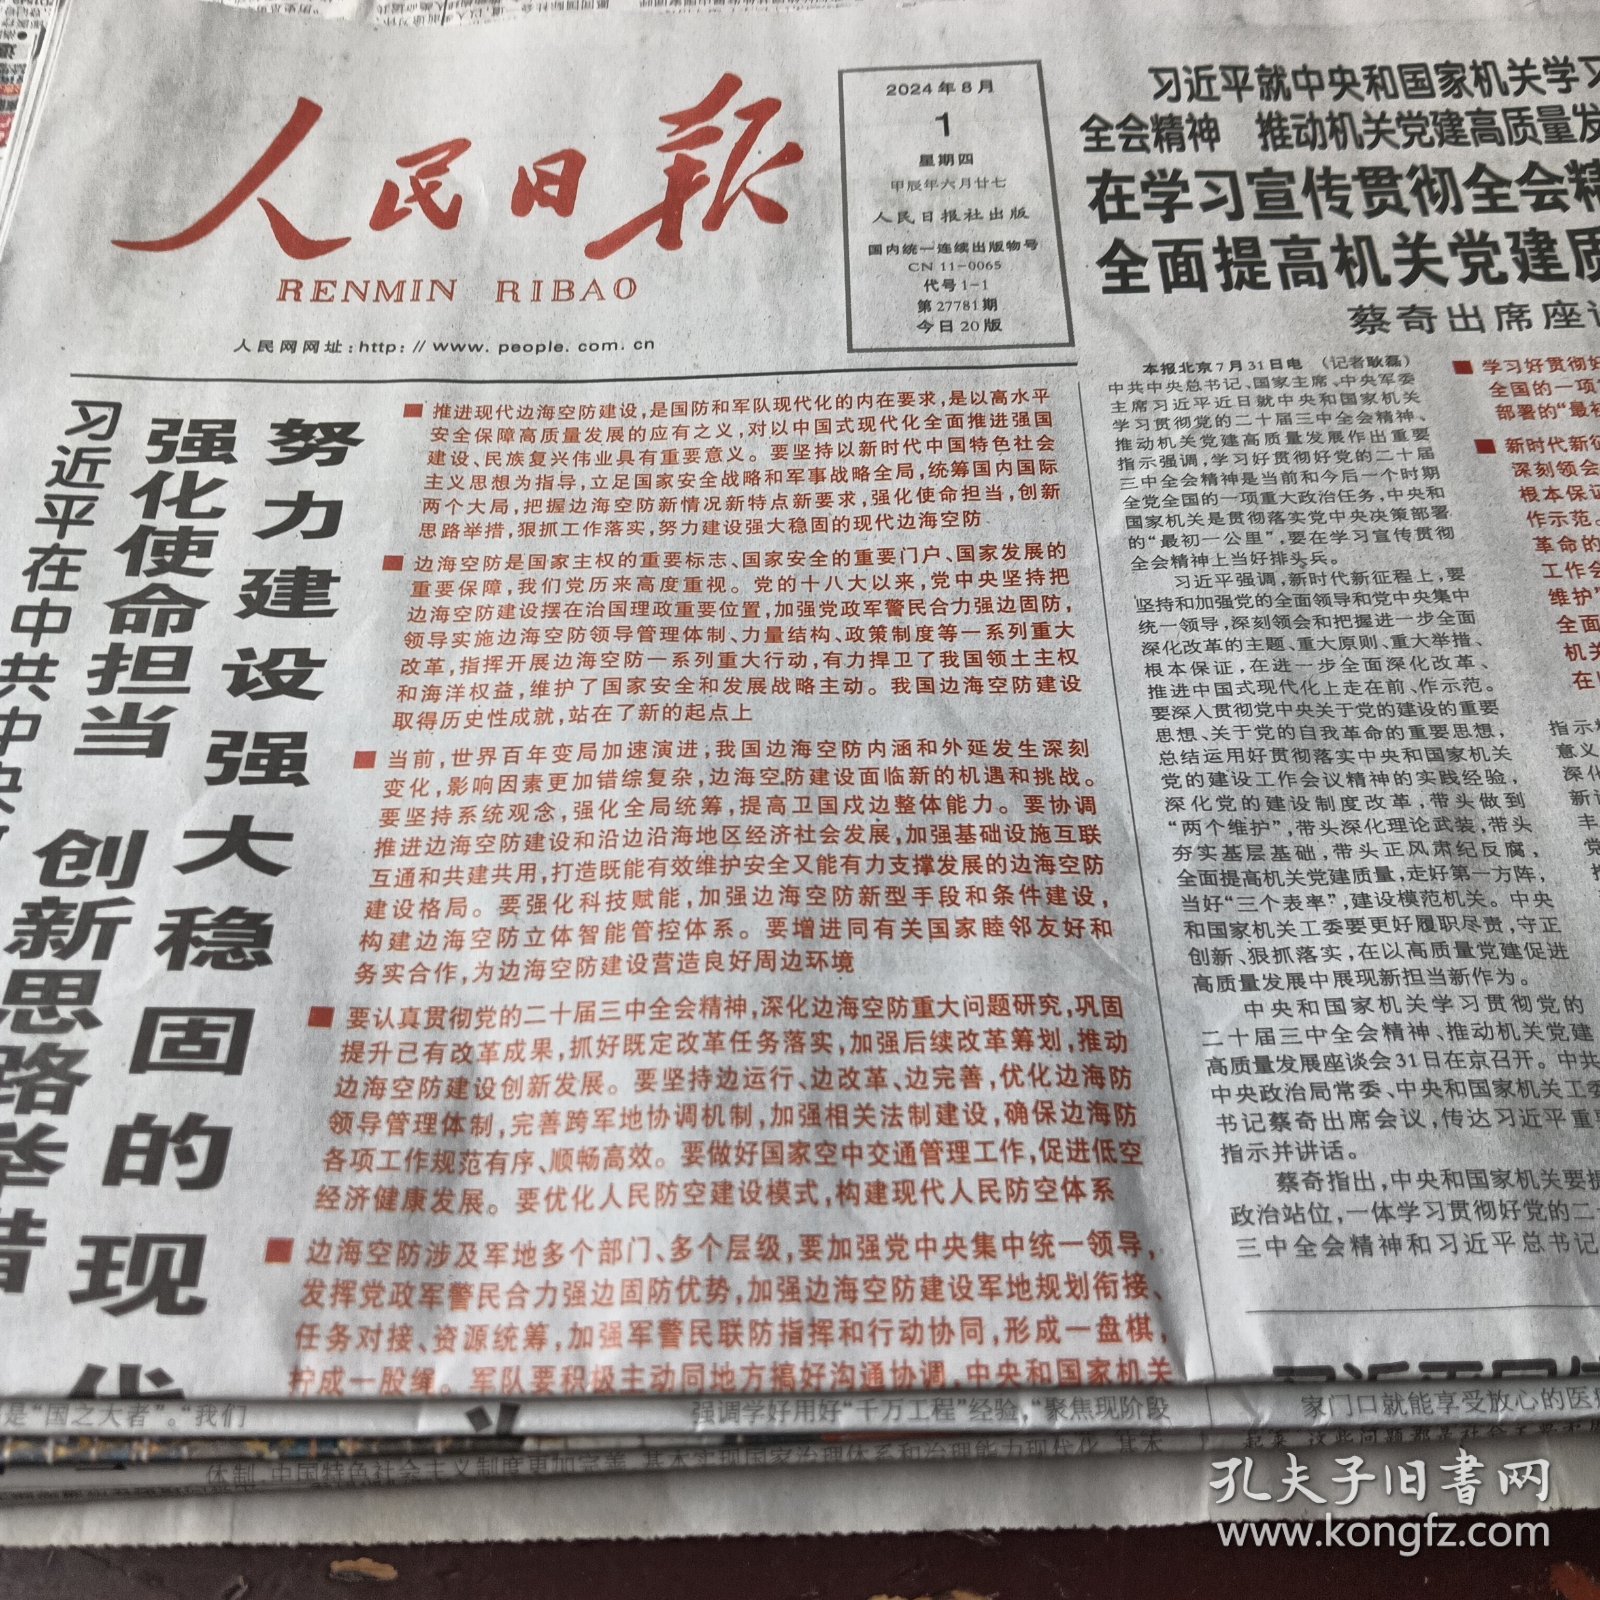 人民日报
RENMIN RIBAO
人民网网址:http://www.people.com.cn
2024年8月
1
星期四
甲辰年六月廿七
人民日报社出版
国内统一连续出版物号
CN 11-0065
代号1-1
第27781期
今日20版
习近平就中央和国家机关学习
全会精神 推动机关党建高质量发
在学习宣传贯彻全会精
全面提高机关党建质
蔡奇出席座
习近平在中共中央
强化使命担当 创新思路举措
努力建设强大稳固的现代
推进现代边海空防建设,是国防和军队现代化的内在要求,是以高水平
安全保障高质量发展的应有之义,对以中国式现代化全面推进强国
建设、民族复兴伟业具有重要意义。要坚持以新时代中国特色社会
主义思想为指导,立足国家安全战略和军事战略全局,统筹国内国际
两个大局,把握边海空防新情况新特点新要求,强化使命担当,创新
思路举措,狠抓工作落实,努力建设强大稳固的现代边海空防
边海空防是国家主权的重要标志、国家安全的重要门户、国家发展的
重要保障,我们党历来高度重视。党的十八大以来,党中央坚持把
边海空防建设摆在治国理政重要位置,加强党政军警民合力强边固防,
领导实施边海空防领导管理体制、力量结构、政策制度等一系列重大
改革,指挥开展边海空防一系列重大行动,有力捍卫了我国领土主权
和海洋权益,维护了国家安全和发展战略主动。我国边海空防建设
取得历史性成就,站在了新的起点上
当前,世界百年变局加速演进,我国边海空防内涵和外延发生深刻
变化,影响因素更加错综复杂,边海空防建设面临新的机遇和挑战。
要坚持系统观念,强化全局统筹,提高卫国戍边整体能力。要协调
推进边海空防建设和沿边沿海地区经济社会发展,加强基础设施互联
互通和共建共用,打造既能有效维护安全又能有力支撑发展的边海空防
建设格局。要强化科技赋能,加强边海空防新型手段和条件建设,
构建边海空防立体智能管控体系。要增进同有关国家睦邻友好和
务实合作,为边海空防建设营造良好周边环境
要认真贯彻党的二十届三中全会精神,深化边海空防重大问题研究,巩固
提升已有改革成果,抓好既定改革任务落实,加强后续改革筹划,推动
边海空防建设创新发展。要坚持边运行、边改革、边完善,优化边海防
领导管理体制,完善跨军地协调机制,加强相关法制建设,确保边海防
各项工作规范有序、顺畅高效。要做好国家空中交通管理工作,促进低空
经济健康发展。要优化人民防空建设模式,构建现代人民防空体系
边海空防涉及军地多个部门、多个层级,要加强党中央集中统一领导,
发挥党政军警民合力强边固防优势,加强边海空防建设军地规划衔接、
任务对接、资源统筹,加强军警民联防指挥和行动协同,形成一盘棋,
拧成一股绳。军队要积极主动同地方搞好沟通协调,中央和国家机关
本报北京7月31日电 (记者耿磊)
中共中央总书记、国家主席、中央军委
主席习近平近日就中央和国家机关
学习贯彻党的二十届三中全会精神、
推动机关党建高质量发展作出重要
指示强调,学习好贯彻好党的二十届
三中全会精神是当前和今后一个时期
全党全国的一项重大政治任务,中央和
国家机关是贯彻落实党中央决策部署
的“最初一公里”,要在学习宣传贯彻
全会精神上当好排头兵。
习近平强调,新时代新征程上,要
坚持和加强党的全面领导和党中央集中
统一领导,深刻领会和把握进一步全面
深化改革的主题、重大原则、重大举措、
根本保证,在进一步全面深化改革、
推进中国式现代化上走在前、作示范。
要深入贯彻党中央关于党的建设的重要
思想、关于党的自我革命的重要思想,
总结运用好贯彻落实中央和国家机关
党的建设工作会议精神的实践经验,
深化党的建设制度改革,带头做到
“两个维护”,带头深化理论武装,带头
夯实基层基础,带头正风肃纪反腐,
全面提高机关党建质量,走好第一方阵,
当好“三个表率”,建设模范机关。中央
和国家机关工委要更好履职尽责,守正
创新、狠抓落实,在以高质量党建促进
高质量发展中展现新担当新作为。
中央和国家机关学习贯彻党的
二十届三中全会精神、推动机关党建
高质量发展座谈会31日在京召开。中共
中央政治局常委、中央和国家机关工委
书记蔡奇出席会议,传达习近平重要
指示并讲话。
蔡奇指出,中央和国家机关要提
政治站位,一体学习贯彻好党的二十
三中全会精神和习近平总书记
学习好贯彻好
全国的一项
部署的“最初
新时代新征
深刻领会
根本保证
作示范。
革命的
工作会
维护”
全面
机关
在
指示精
意义
深化
新
是“国之大者”。“我们
强调学好用好“千万工程”经验,“聚焦现阶段
家门口就能享受放心的医疗
体制,中国特色社会主义制度更加完善,基本实现国家治理体系和治理能力现代化,基本
孔夫子旧书网
www.kongfz.com